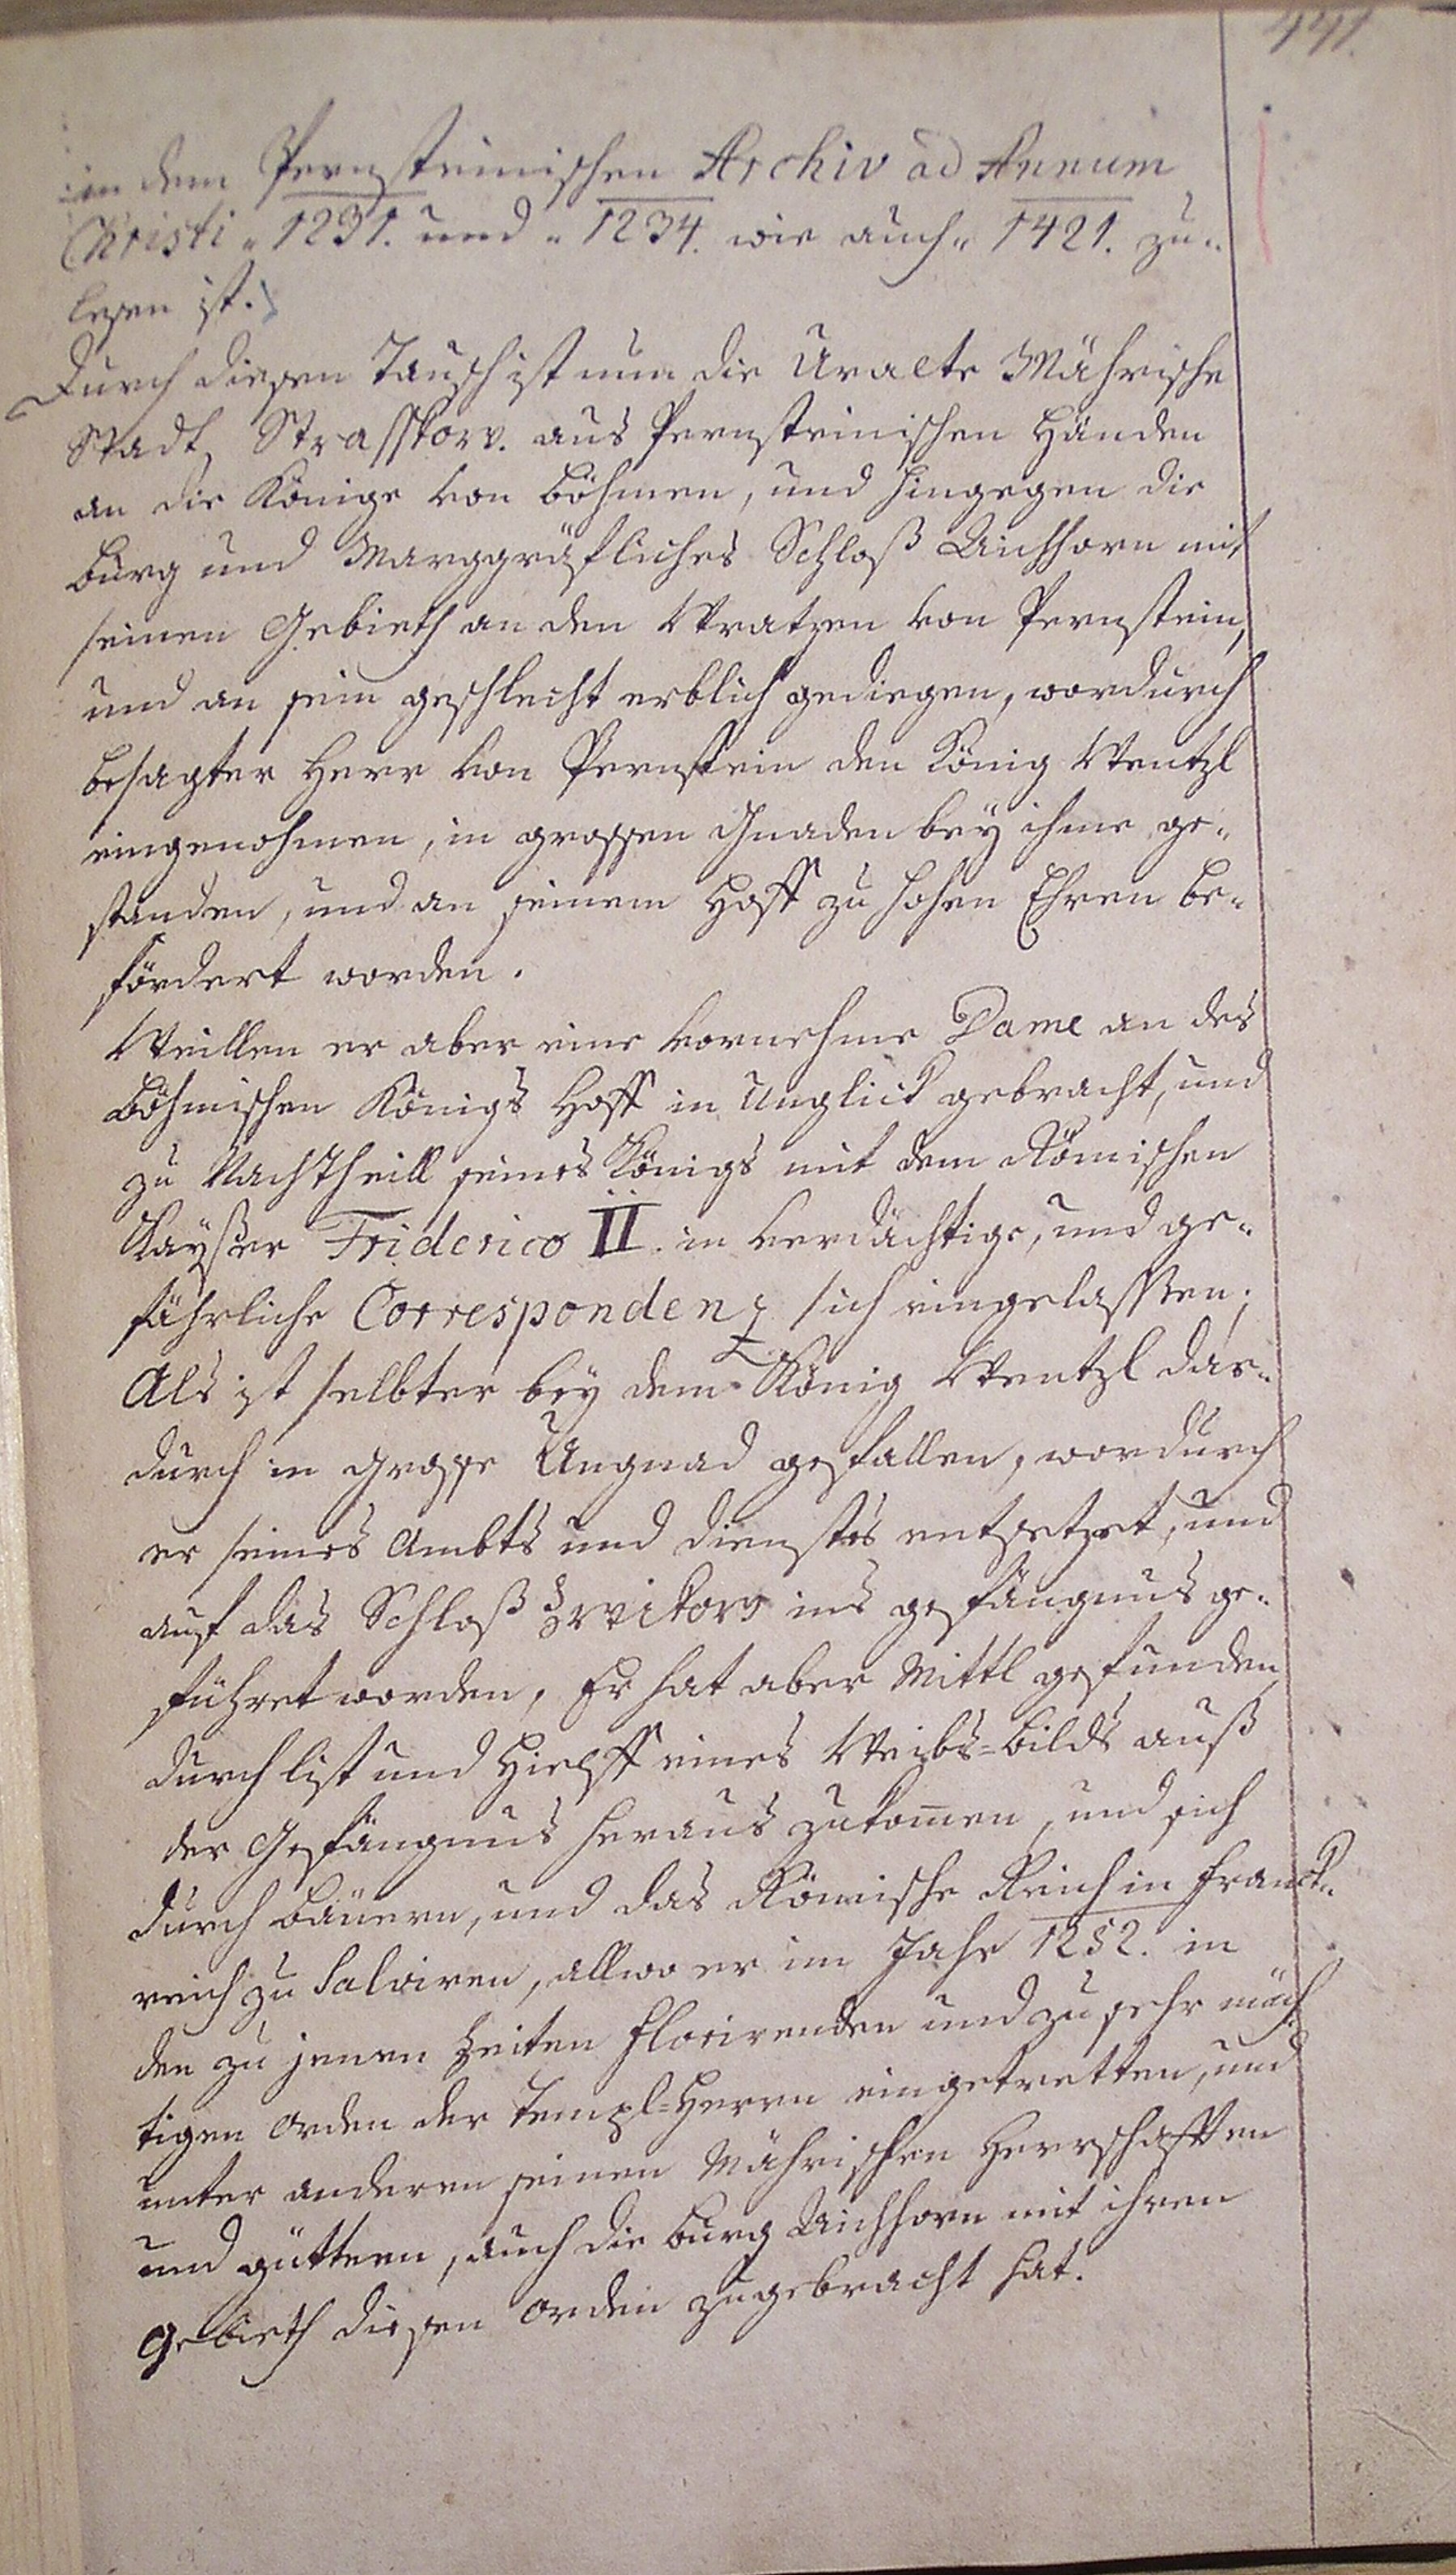 441.
in dem Pernsteinischen Archiv ad Annum
Christi „ 1231. und „ 1234. wie auch „ 1421. zu„
lesen ist.
Durch diesen Tausch ist nun die Uralte Mährische
Stadt, aus Pernsteinischen Händen
an die Könige von Böhmen, und hingegen die
Burg und Marggräfliches Schloß Aichhorn mit
seinen Gebieth an den Wratzen von Pernstein,
und an sein geschlecht erblich gediegen, wordurch
besagter Herr von Pernstein den König Wentzl
eingenohmen, in grossen Gnaden bey ihme ge„
standen, und an seinem Hoff zu hohen Ehren be„
fördert worden.
Weillen er aber eine vornehme Dame an des
Böhmischen Königs Hoff in Unglick gebracht, und
zu Nachtheill seines Königs mit dem Römischen
Kayßer Friderico II. in verdächtige, und ge„
fährliche Correspondenz sich eingelassen;
Als ist selbter bey dem König Wentzl dar„
durch in grosse Ungnad gefallen, wordurch
er seines Ambts und Dienstes entsetzet, und
auf das Schloß ins gefängnus ge„
führet worden, Er hat aber Mittl gefunden,
durch list und Hielff eines Weibs=bilds auß
der Gefängnus heraus zukom̅en, und sich
durch Bäuern, und das Römische Reich in Franck„
reich zu Salviren, allwo er im Jahr 1252. in
den zu jenen Zeiten florirenden und zu sehr mäch
tigen Orden der Templ=Herrn eingetretten, und
unter anderen seinen Mährischen Herrschafften
und güttern, auch die Burg Aichhorn mit ihren
gebieth diesen Orden zugebracht hat.